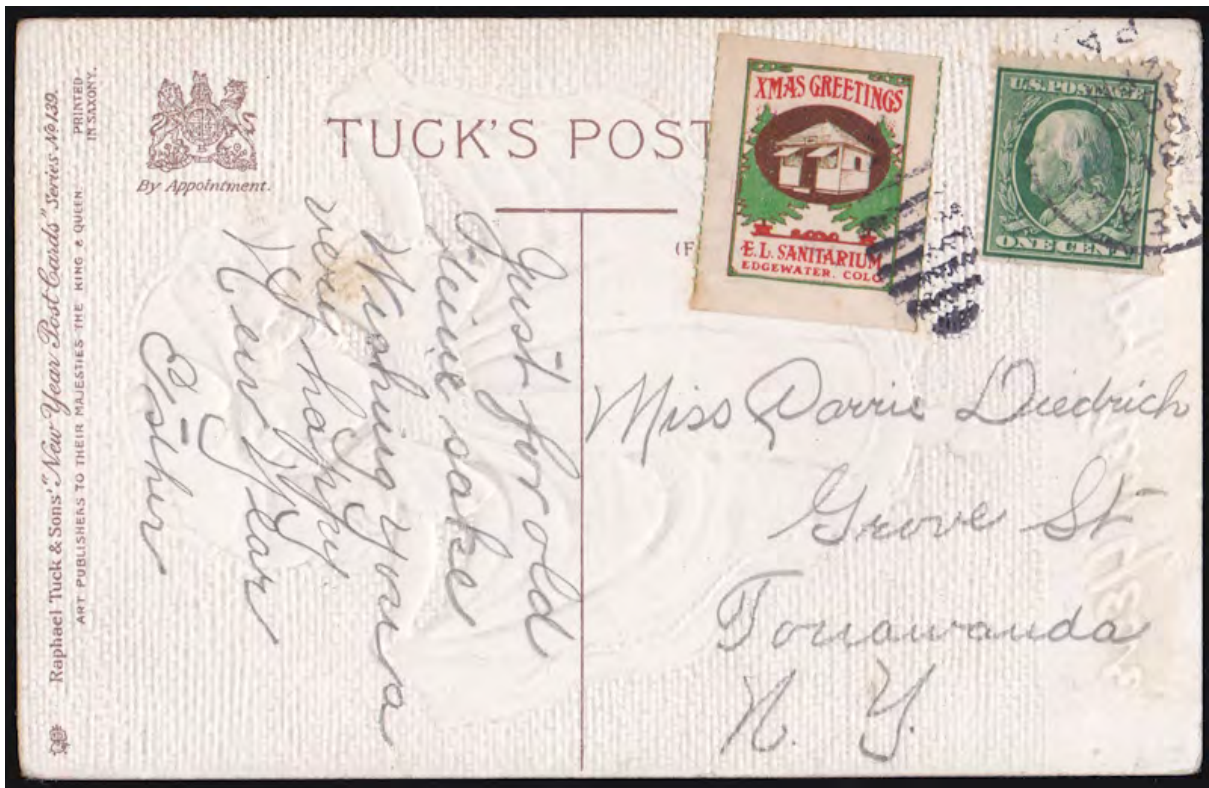 Raphael Tuck & Sons' "New Year Post Cards" Series № 139.
ART PUBLISHERS TO THEIR MAJESTIES THE KING & QUEEN
PRINTED
IN SAXONY.
By Appointment.
TUCK'S POST
(F
XMAS GREETINGS
E.L. SANITARIUM
EDGEWATER. COLO
U.S. POSTAGE
ONE CENT
Just for old
time sake
Wishing you a
very happy
New Year
Esther
Miss Carrie Diedrich
Grove St
Tonawanda
N. Y.